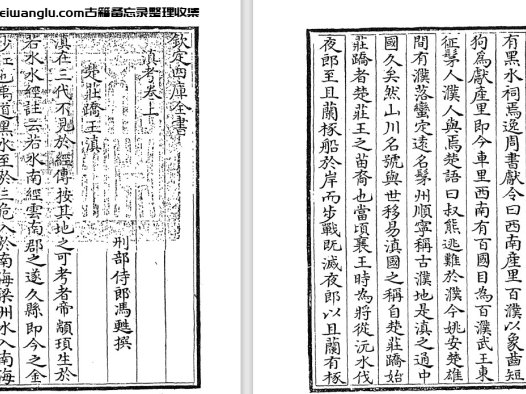 eiwanglu.com古籍备忘录整理收集
欽定四庫全書
滇考卷上
刑部侍郎馮甦撰
楚莊蹻王滇
滇在三代不見於經傳按其地之可考者帝顓頊生於
若水水經註云若水南經雲南郡之遂久縣即今之金
沙江也禹道黑水至於三危入於南海梁州水入南海
有黑水祠焉逸周書獻令曰西南産里百濮以象齒短
狗為獻産里即今車里西南有百國目為百濮武王東
征髳人濮人與焉楚語曰叔熊逃難於濮今姚安楚雄
間有濮落蠻定遠名髳州順寧稱古濮地是滇之通中
國久矣然山川名號與世移易滇國之稱自楚莊蹻始
莊蹻者楚莊王之苗裔也當頃襄王時為將從沅水伐
夜郎至且蘭椓船於岸而步戰既滅夜郎以且蘭有椓